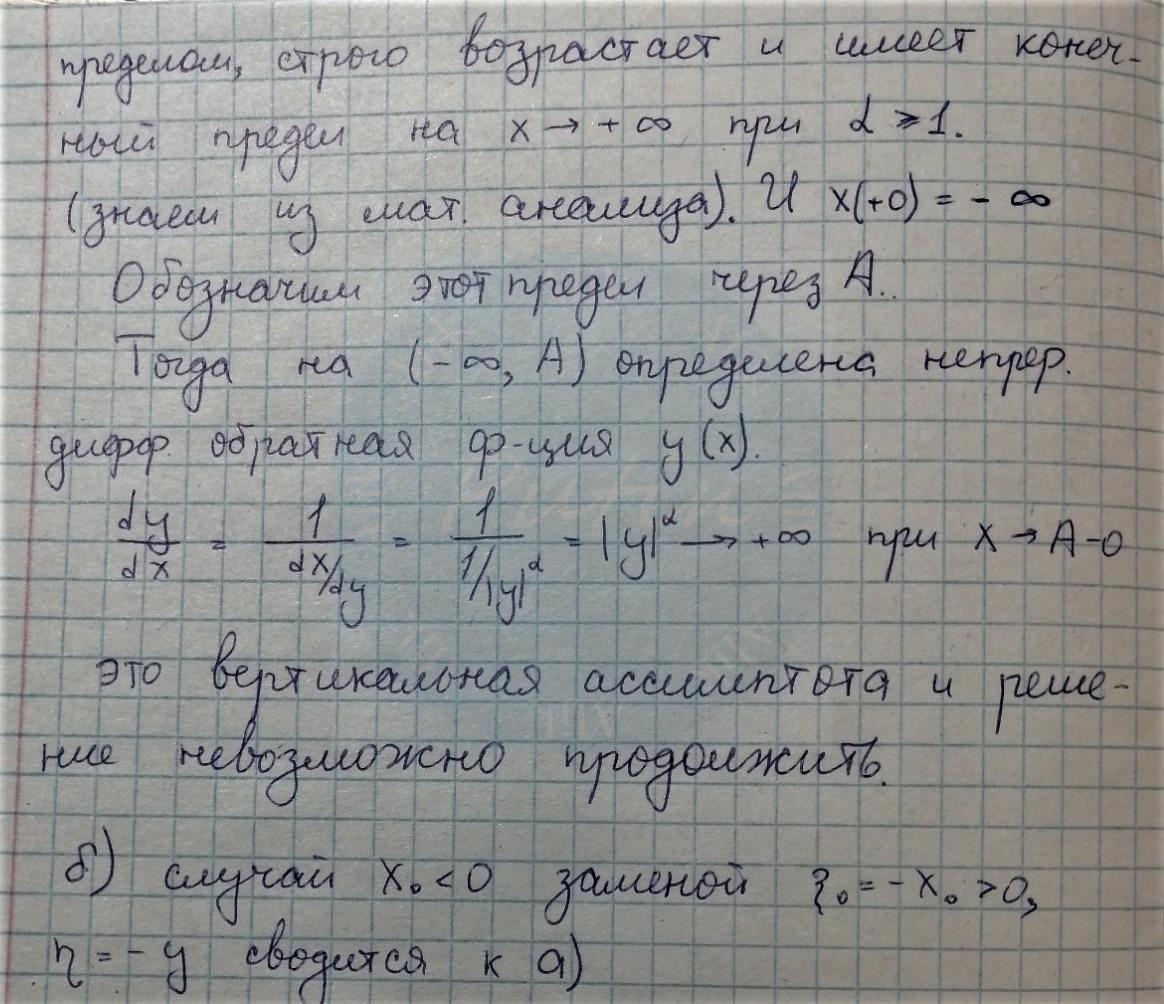 пределом, строго возрастает и имеет конеч-
ный предел на x → + ∞ при α ≥ 1.
(знаем из мат. анализа). И x(+0) = - ∞
Обозначим этот предел через A.
Тогда на (-∞, A) определена непрер.
дифф. обратная ф-ция y(x).
dy/dx = 1/(dx/dy) = 1/(1/|y|^α) = |y|^α → +∞ при x → A-0
это вертикальная ассимптота и реше-
ние невозможно продолжить.
б) случай x₀ < 0 заменой ξ₀ = -x₀ > 0,
η = -y сводится к а)